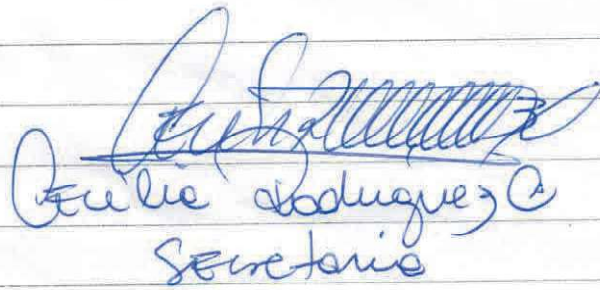 Cecilia Rodriguez C
Secretaria